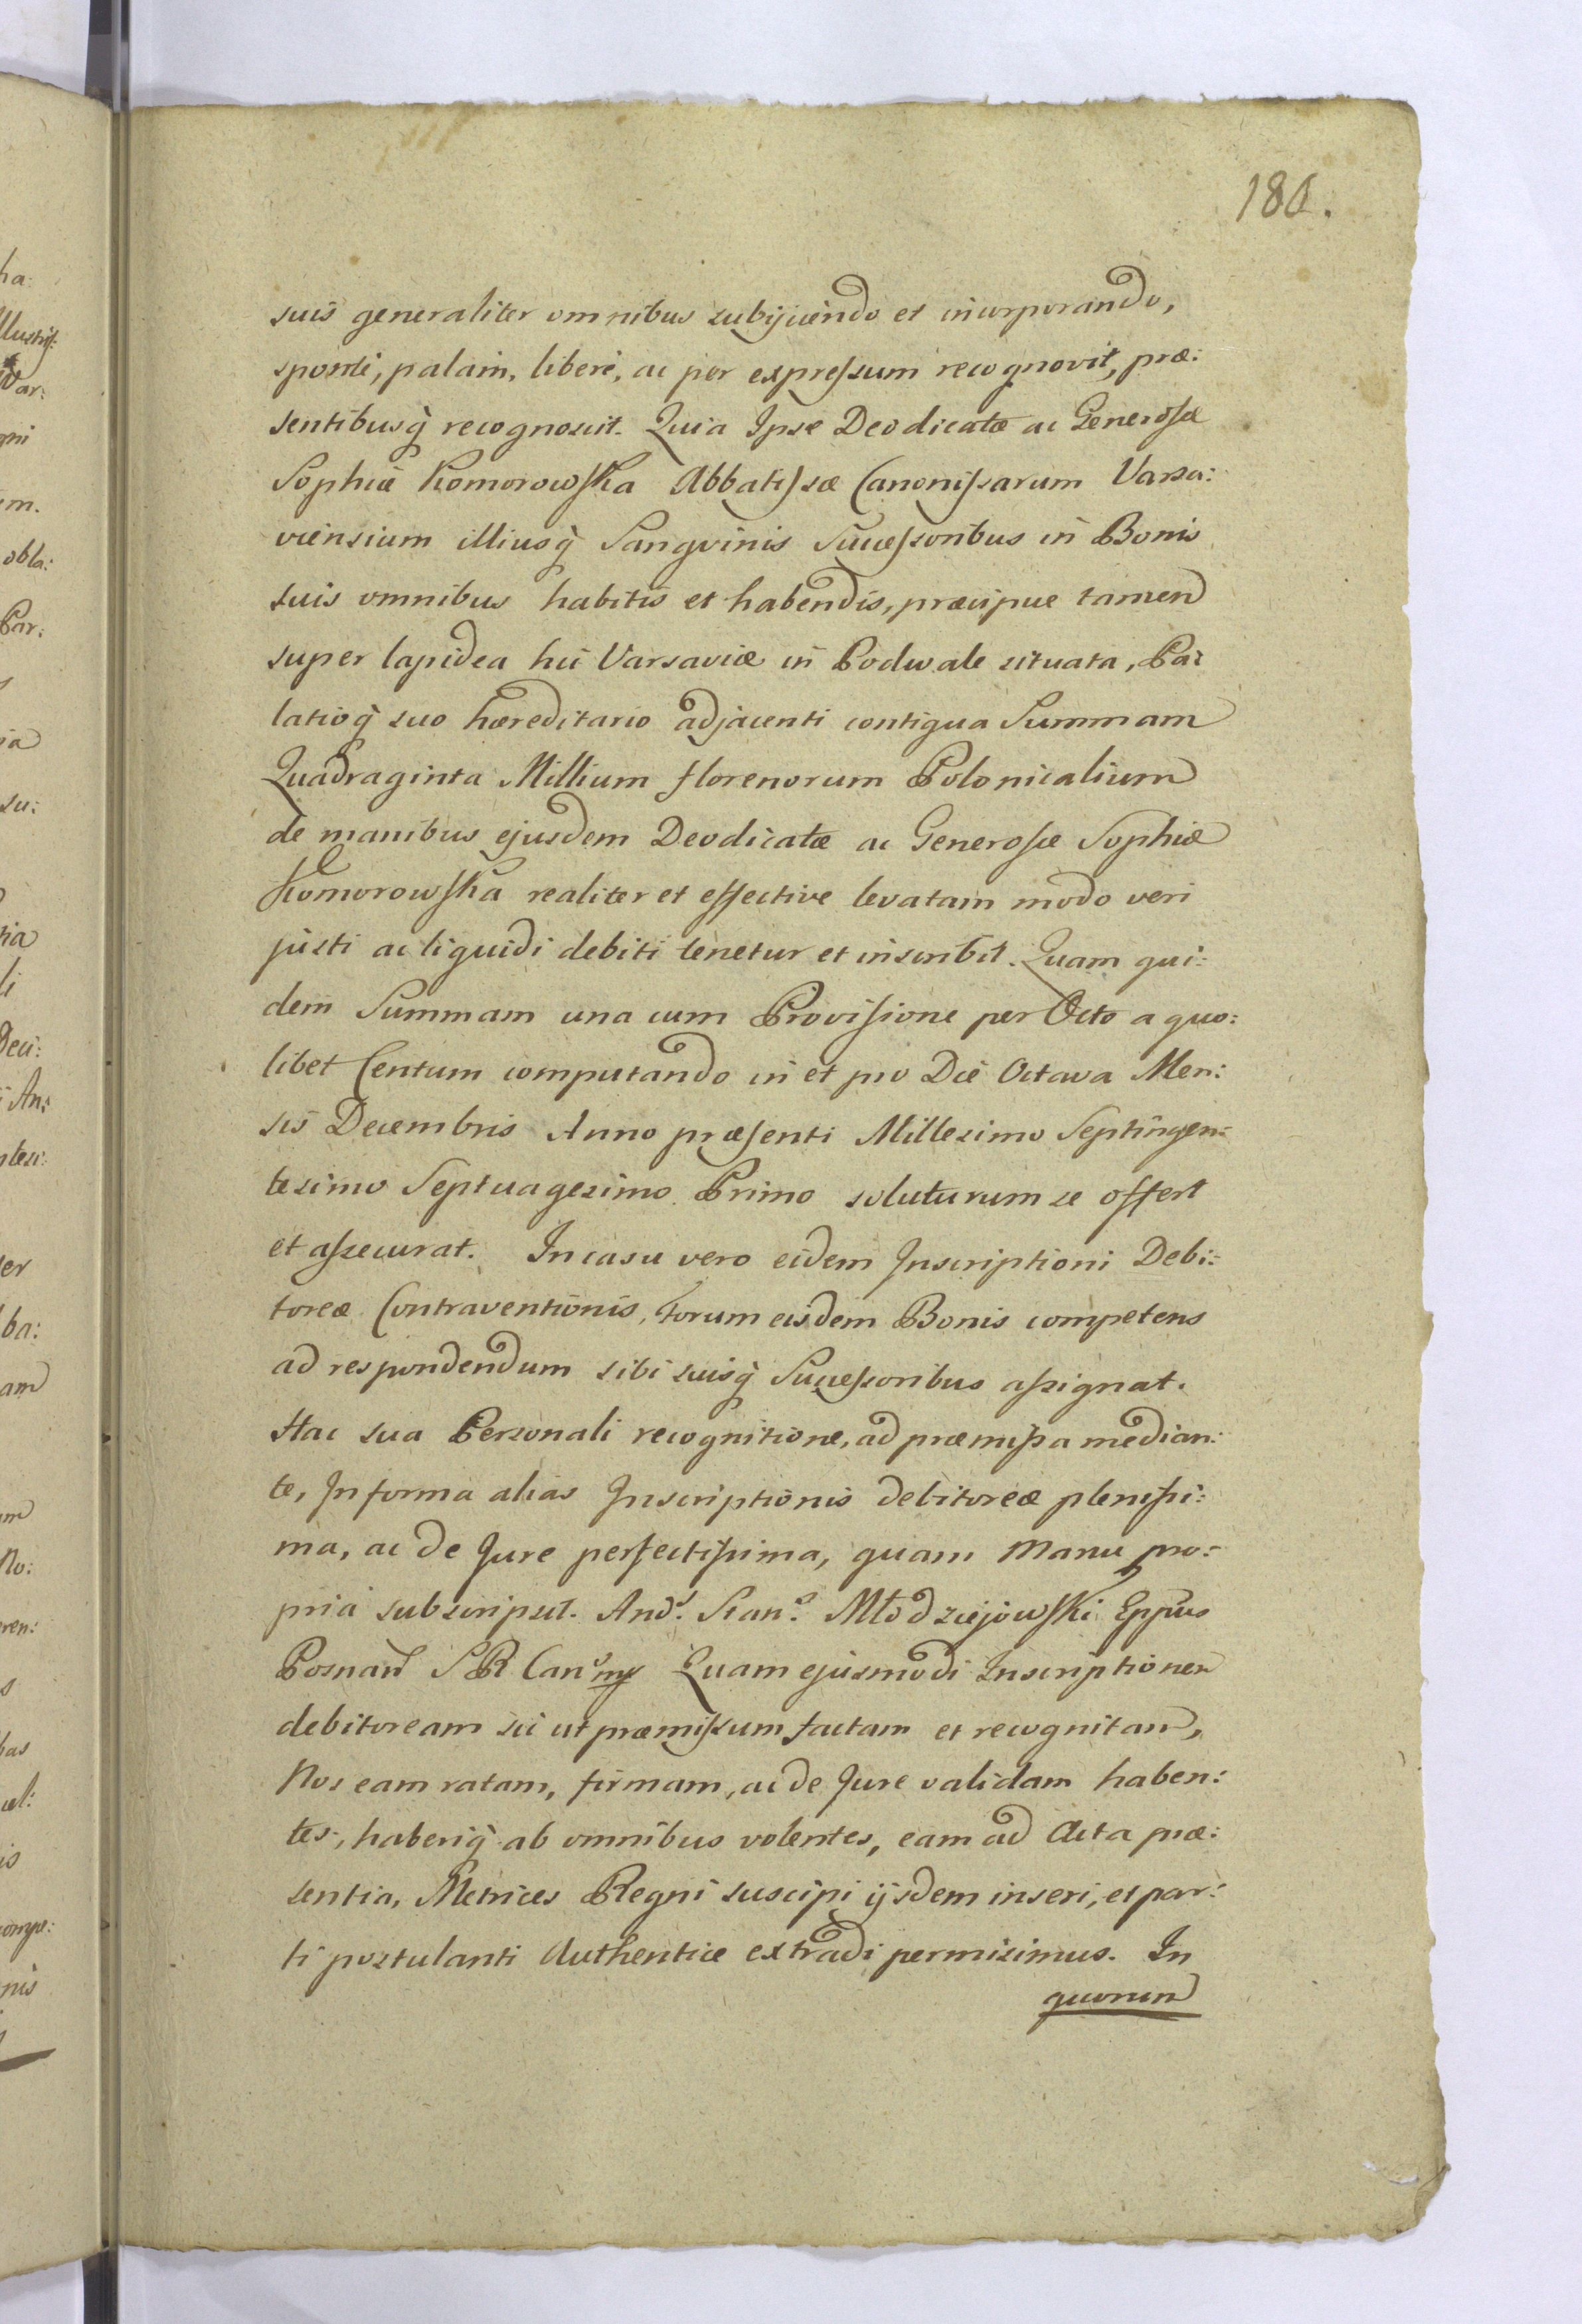 181.
suis generaliter omnibus subijciendo et incorporando,
sponte, palam, libere, ac per expressum recognovit, præ:
sentibusq̀ recognoscit. Quia Ipse Deodicatæ ac Generosæ
Sophiæ Komorowska Abbatissæ Canonissarum Varsa:
viensium illiusq̀ Sangvinis Successoribus in Bonis
suis omnibus habitis et habendis, præcipue tamen
super lapidea hic Varsaviæ in Podwale situata, Pa:
latioq̀ suo hæreditario adjacenti contigua Summam
Quadraginta Millium florenorum Polonicalium
de manibus ejusdem Deodicatæ ac Generosæ Sophiæ
Komorowska realiter et effective levatam modo veri
justi ac liquidi debiti tenetur et inscribit. Quam qui:
dem Summam una cum Provisione per Octo a quo:
libet Centum computando in et pro Die Octava Men:
sis Decembris Anno præsenti Millesimo Septingen:
tesimo Septuagesimo Primo soluturum se offert
et assecurat. In casu vero eidem Inscriptioni Debi:
toreæ Contraventionis, Forum eisdem Bonis competens
ad respondendum sibi suisq̀ Successoribus assignat.
Hac sua Personali recognitione, ad præmissa median:
te, In forma alias Inscriptionis debitoreæ plenissi:
ma, ac de Jure perfectissima, quam Manu pro:
pria subscripsit. Andr. Stan. Młodziejowski Eppus
Posnan S R Can. mp Quam ejusmodi Inscriptionem
debitoream sic ut præmissum factam et recognitam,
Nos eam ratam, firmam, ac de Jure validam haben:
tes, haberiq̀ ab omnibus volentes, eam ad Acta præ:
sentia, Metrices Regni suscipi ijsdem inseri, et par:
ti postulanti Authentice extradi permisimus. In
quorum